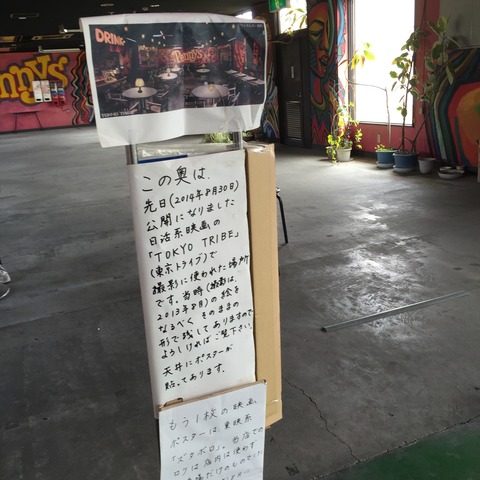 DRINK
Penny's
TOKYO TRIBE
nnys
この奥は、
先日(2014年8月30日)
公開になりました
日活系映画の
「TOKYO TRIBE」
(東京トライブ)で
撮影に使われた場所
です。当時(撮影は、
2013年8月)の絵を
なるべく そのままの
形で残してありますので
よろしければご覧下さい。
天井にポスターが
貼ってあります。
もう1枚の映画
ポスターは、東映系
「ズタボロ」。当店での
ロケは店内は使わず